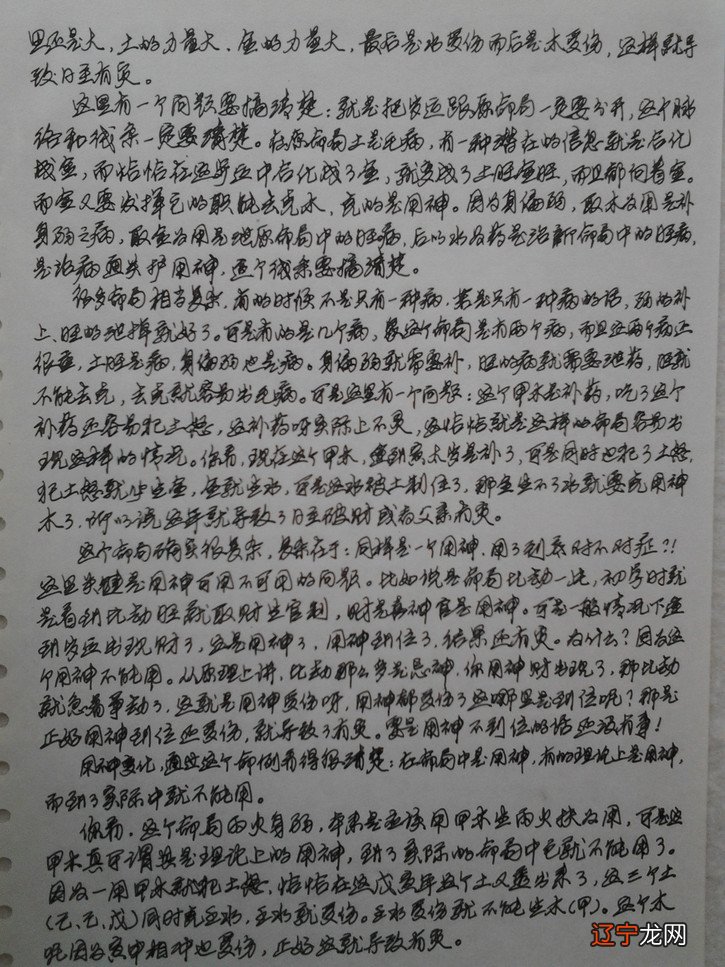 里还是火，土的力量大、金的力量大，最后是水受伤而后是木受伤，这样就导
致日主有灾。
这里有一个问题要搞清楚：就是把岁运跟原命局一定要分开，这个脉
络和线条一定要清楚。在原命局土是毛病，有一种潜在的信息就是合化
成金，而恰恰在这岁运中合化成了金，就变成了土旺金旺，而且都向着金。
而金又要发挥它的职能去克木，克的是用神。因为身偏弱，取木为用是补
身弱之病，取金为用是泄原命局中的旺病，后以水为药是治新命局中的旺病，
是治病通关护用神，这个线条要搞清楚。
很多命局相当复杂，有的时候不是只有一种病，若是只有一种病的话，弱的补
上、旺的泄掉就好了。可是有的是几个病，象这个命局是有两个病，而且这两个病还
很重，土旺是病，身偏弱也是病。身偏弱就需要补，旺的病就需要泄药，旺就
不能去克，去克就容易出毛病。可是这里有一个问题：这个甲木是补药，吃了这个
补药还容易犯土怒，这补药呀实际上不灵，这恰恰就是这样的命局容易出
现这样的情况。你看，现在这个甲木，逢到寅太岁是补了，可是同时也犯了土怒，
犯土怒就生金，金就生水，可是这水被土制住了，那金生不了水就要克用神
木了，所以说这年就导致了日主破财或者父亲有灾。
这个命局确实很复杂，复杂在于：同样是一个用神，用了到底对不对症？！
这里关键是用神可用不可用的问题。比如说是命局比劫一片，初学时就
是看到比劫旺就取财生官制，财是喜神官是用神。可是一般情况下逢
到岁运出现财了，这是用神了，用神到位了，结果还有灾。为什么？因为这
个用神不能用。从原理上讲，比劫那么多是忌神，你用神财出现了，那比劫
就急着争劫了，这就是用神受伤呀，用神都受伤了这哪里是到位呢？那是
正好用神到位还受伤，就导致了有灾。要是用神不到位的话还没有事！
用神变化，通过这个命例看得很清楚：在命局中是用神，有的理论上是用神，
而到了实际中就不能用。
你看，这个命局丙火身弱，本来是应该用甲木生丙火扶为用，可是这
甲木真可谓只是理论上的用神，到了实际的命局中它就不能用了。
因为一用甲木就犯土怒，恰恰在这戊寅年这个土又透出来了，这三个土
(己、己、戊)同时克壬水，壬水就受伤。壬水受伤就不能生木(甲)。这个木
呢因为寅申相冲也受伤，正好这就导致有灾。
辽宁龙网